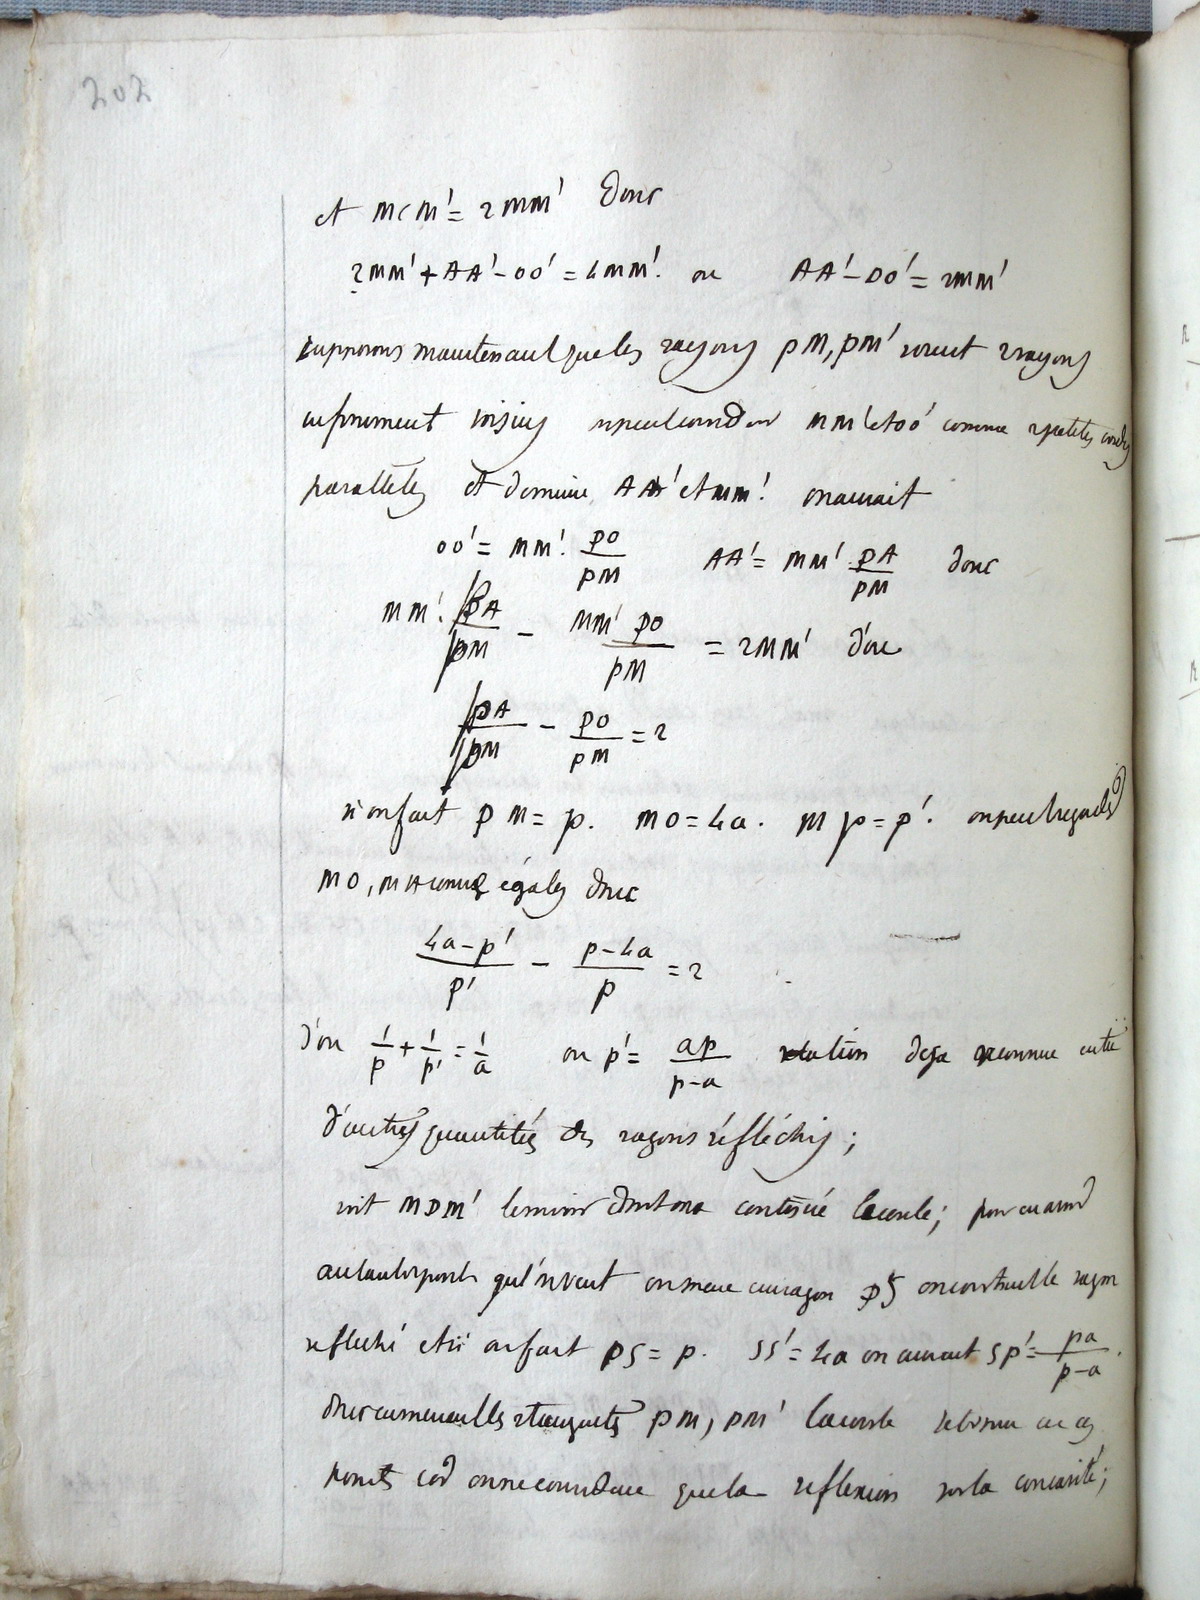 202
et McM' = 2MM' donc
2MM' + AA' - OO' = 4MM'. ou AA' - OO' = 2MM'
supposons maintenant que les rayons pM, pM' soient 2 rayons
infiniment voisins MM' et OO' comme 2 petites cordes
parallèles et de même AA' et MM'. on aurait
OO' = MM'. pO/pM AA' = MM' pA/pM donc
MM'. pA/pM - MM' pO/pM = 2MM' d'où
pA/pM - pO/pM = 2
si on fait pM = p. MO = 4a. Mp = p'. on peut regarder
MO, MA comme égales donc
4a-p'/p' - p-4a/p = 2
d'où 1/p + 1/p' = 1/a ou p' = ap/p-a relation deja reconnue entre
d'autres quantités des rayons réfléchis;
soit MDM' le miroir dont on a continué le cercle; pour
qu'il s'en veut on mene un rayon pS on construit le rayon
reflechi et si on fait pS = p. SS' = 4a on aurait Sp' = pa/p-a.
donc 2 tangentes pM, pM' la courbe se en ces
points car on ne considere que la reflexion sur la concavité;